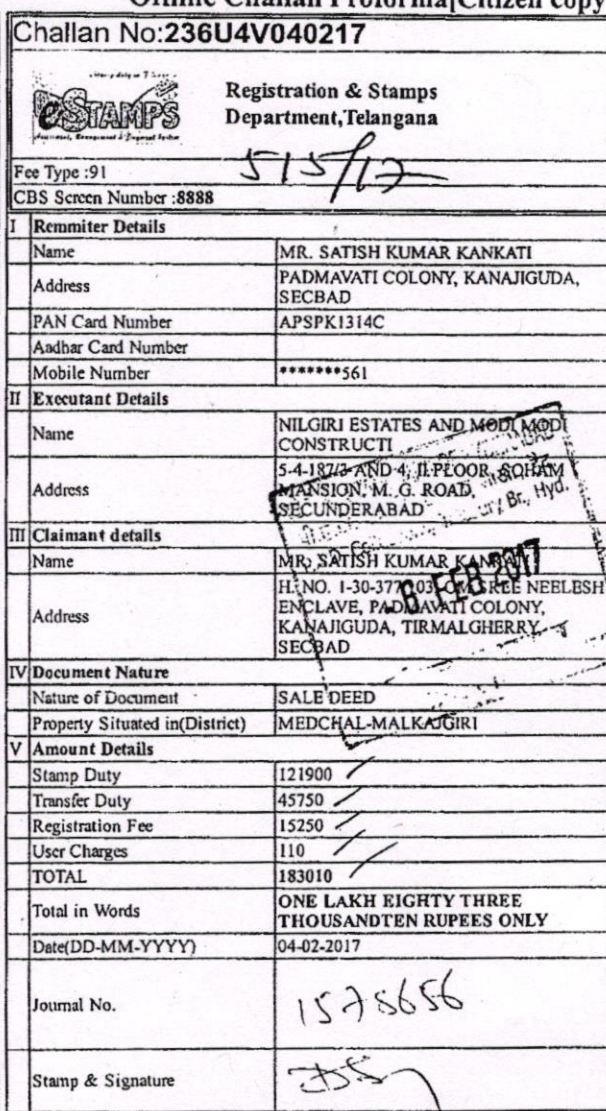 Offline Challan Proforma[Citizen copy
Challan No:236U4V040217
eSTAMPS
Registration & Stamps
Department,Telangana
515/17
Fee Type :91
CBS Screen Number :8888
I Remmiter Details
Name MR. SATISH KUMAR KANKATI
Address PADMAVATI COLONY, KANAJIGUDA,
SECBAD
PAN Card Number APSPK1314C
Aadhar Card Number
Mobile Number *******561
II Executant Details
Name NILGIRI ESTATES AND MODI MODI
CONSTRUCTI
Address 5-4-187/3 AND 4, II FLOOR, SOHAM
MANSION, M. G. ROAD,
SECUNDERABAD
Br, Hyd.
III Claimant details
Name MR. SATISH KUMAR
6 FEB 2017
Address H. NO. 1-30-377 NEELESH
ENCLAVE, PADMAVATI COLONY,
KANAJIGUDA, TIRMALGHERRY
SECBAD
IV Document Nature
Nature of Document SALE DEED
Property Situated in(District) MEDCHAL-MALKAJGIRI
V Amount Details
Stamp Duty 121900
Transfer Duty 45750
Registration Fee 15250
User Charges 110
TOTAL 183010
Total in Words ONE LAKH EIGHTY THREE
THOUSANDTEN RUPEES ONLY
Date(DD-MM-YYYY) 04-02-2017
Journal No. 1578656
Stamp & Signature